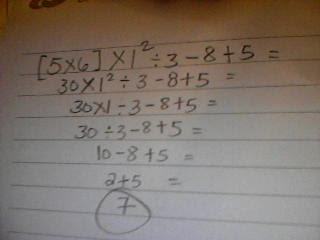 [5×6] ×1² ÷ 3 − 8 + 5 =
30×1² ÷ 3 − 8 + 5 =
30×1 ÷ 3 − 8 + 5 =
30 ÷ 3 − 8 + 5 =
10 − 8 + 5 =
2 + 5 =
7